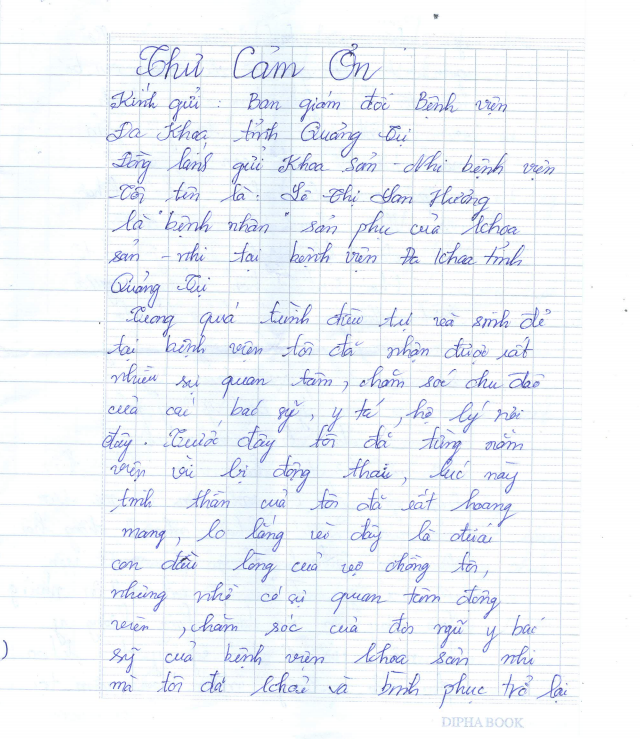 Thư Cảm Ơn
Kính gửi : Ban giám đốc Bệnh viện
Đa Khoa tỉnh Quảng Trị
Đồng kính gửi Khoa sản - Nhi bệnh viện
Tôi tên là : Lê Thị Lan Hương
là "bệnh nhân" sản phụ của khoa
sản - nhi tại bệnh viện Đa khoa tỉnh
Quảng Trị
Trong quá trình điều trị và sinh đẻ
tại bệnh viện tôi đã nhận được rất
nhiều sự quan tâm, chăm sóc chu đáo
của các bác sỹ, y tá, hộ lý nơi
đây. Trước đây tôi đã từng nằm
viện vì bị động thai, lúc này
tinh thần của tôi đã rất hoang
mang, lo lắng vì đây là đứa
con đầu lòng của vợ chồng tôi,
nhưng nhờ có sự quan tâm động
viên, chăm sóc của đội ngũ y bác
sỹ của bệnh viện khoa sản nhi
mà tôi đã khoẻ và bình phục trở lại
)
DIPHA BOOK